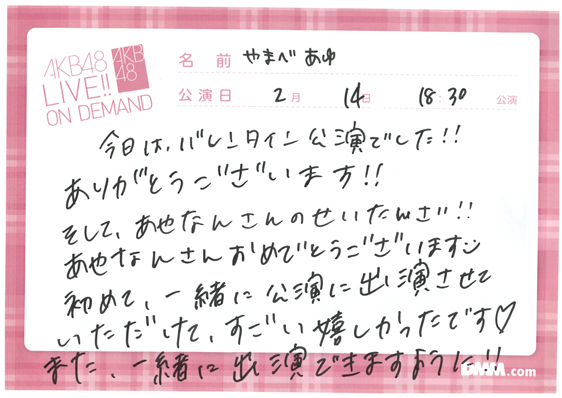 AKB48
LIVE!!
ON DEMAND
AKB
48
名 前 やまべ あゆ
公演日 2月 14日 18:30 公演
今日は、バレンタイン公演でした!!
ありがとうございます!!
そして、あやなんさんのせいたんさい!!
あやなんさんおめでとうございます
初めて、一緒に公演に出演させて
いただけて、すごい嬉しかったです♡
また、一緒に出演できますように!!
DMM.com